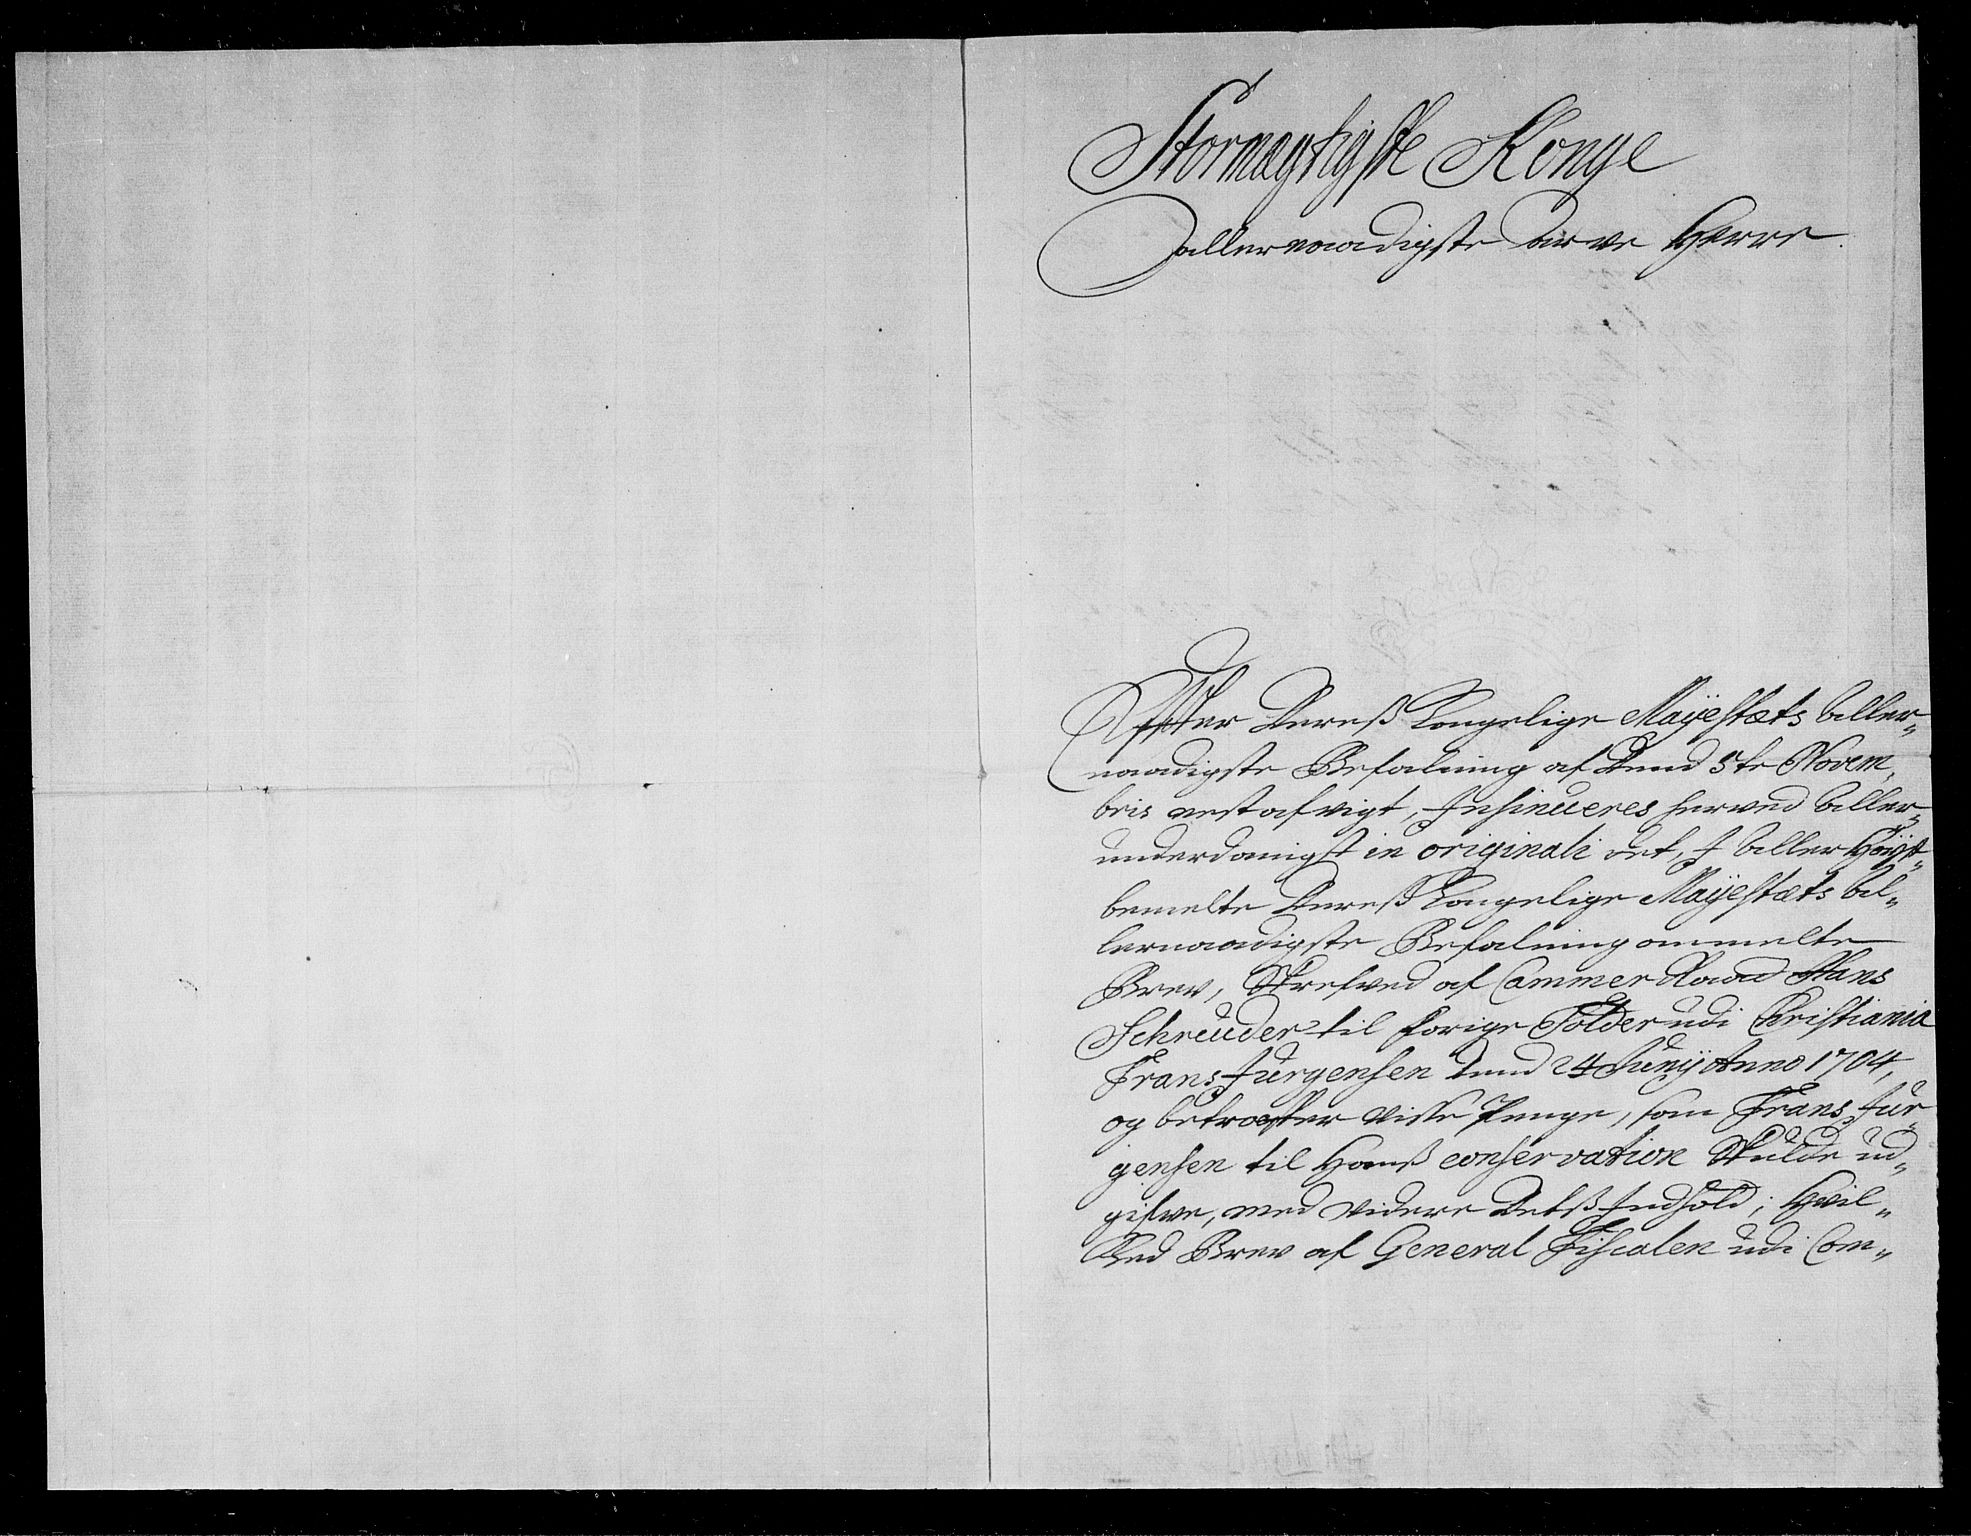 Stormægtigste Konge
allernaadigste Arve Herre.
Effter Dereß Kongelige Mayestæts aller-
naadigste Befalning af Dend 5te Novem,
bris nestafvigt, Insinueres herved aller-
underdanigst in originali det, I aller Høyst-
bemelte Dereß Kongelige Mayestæts al-
lernaadigste Befalning ommelte
Brev, Skrefved af Cammer Raad Hans
Schreuder til forige Tolder udi Christiania
Frans Jürgensen Dend 24 Junij Anno 1704,
og betræffer visse Penge, som Frans Jür-
gensen til Hanß conservation Skulde ud-
gifve, med videre Detß Indhold; Hvil-
Ked Brev af General Fiscalen udi Com-